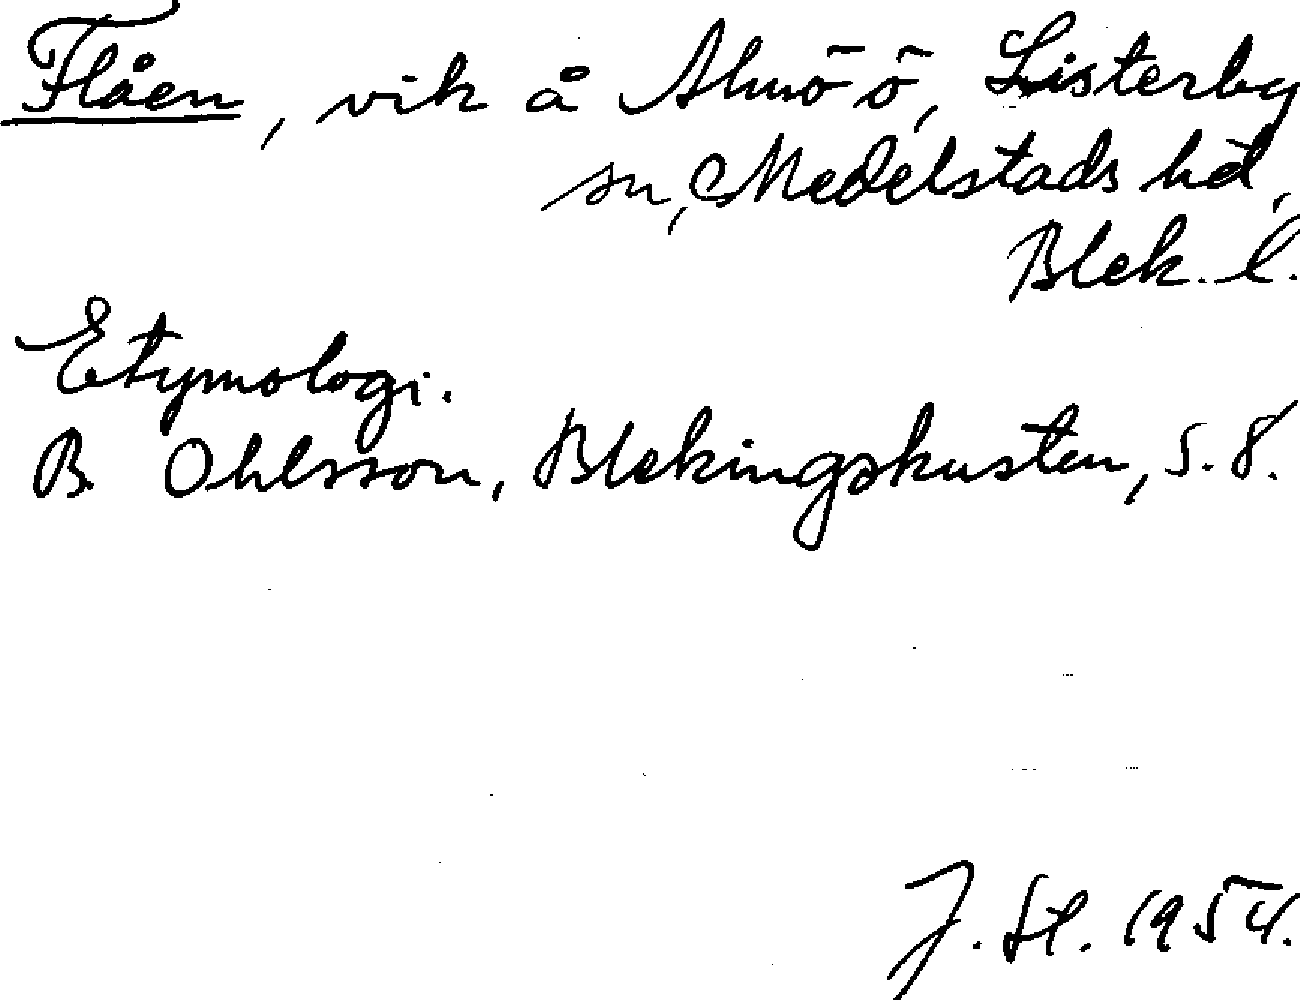 Flåen, vik å Almö ö, Listerby
sn, Medelstads hd,
Blek. l.
Etymologi.
B Ohlsson, Blekingskusten, s. 8.
J. St. 1954.